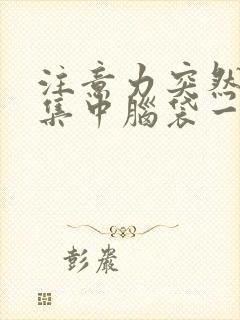 注意力突然
集中腦袋一
彭嚴